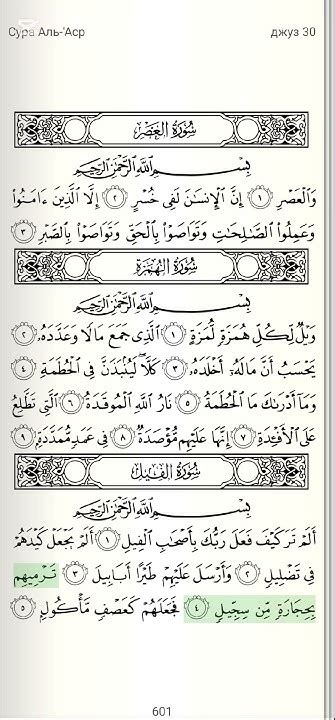 Сура Аль-'Аср джуз 30
سُورَةُ العَصْرِ
بِسْمِ اللَّهِ الرَّحْمَٰنِ الرَّحِيمِ
وَالْعَصْرِ ١ إِنَّ الْإِنسَانَ لَفِي خُسْرٍ ٢ إِلَّا الَّذِينَ ءَامَنُوا
وَعَمِلُوا الصَّالِحَاتِ وَتَوَاصَوْا بِالْحَقِّ وَتَوَاصَوْا بِالصَّبْرِ ٣
سُورَةُ الهُمَزَةِ
بِسْمِ اللَّهِ الرَّحْمَٰنِ الرَّحِيمِ
وَيْلٌ لِّكُلِّ هُمَزَةٍ لُّمَزَةٍ ١ الَّذِي جَمَعَ مَالًا وَعَدَّدَهُ ٢
يَحْسَبُ أَنَّ مَالَهُ أَخْلَدَهُ ٣ كَلَّا لَيُنبَذَنَّ فِي الْحُطَمَةِ ٤
وَمَا أَدْرَىٰكَ مَا الْحُطَمَةُ ٥ نَارُ اللَّهِ الْمُوقَدَةُ ٦ الَّتِي تَطَّلِعُ
عَلَى الْأَفْـِٔدَةِ ٧ إِنَّهَا عَلَيْهِم مُّؤْصَدَةٌ ٨ فِي عَمَدٍ مُّمَدَّدَةٍ ٩
سُورَةُ الفِيلِ
بِسْمِ اللَّهِ الرَّحْمَٰنِ الرَّحِيمِ
أَلَمْ تَرَ كَيْفَ فَعَلَ رَبُّكَ بِأَصْحَابِ الْفِيلِ ١ أَلَمْ يَجْعَلْ كَيْدَهُمْ
فِي تَضْلِيلٍ ٢ وَأَرْسَلَ عَلَيْهِمْ طَيْرًا أَبَابِيلَ ٣ تَرْمِيهِم
بِحِجَارَةٍ مِّن سِجِّيلٍ ٤ فَجَعَلَهُمْ كَعَصْفٍ مَّأْكُولٍ ٥
601